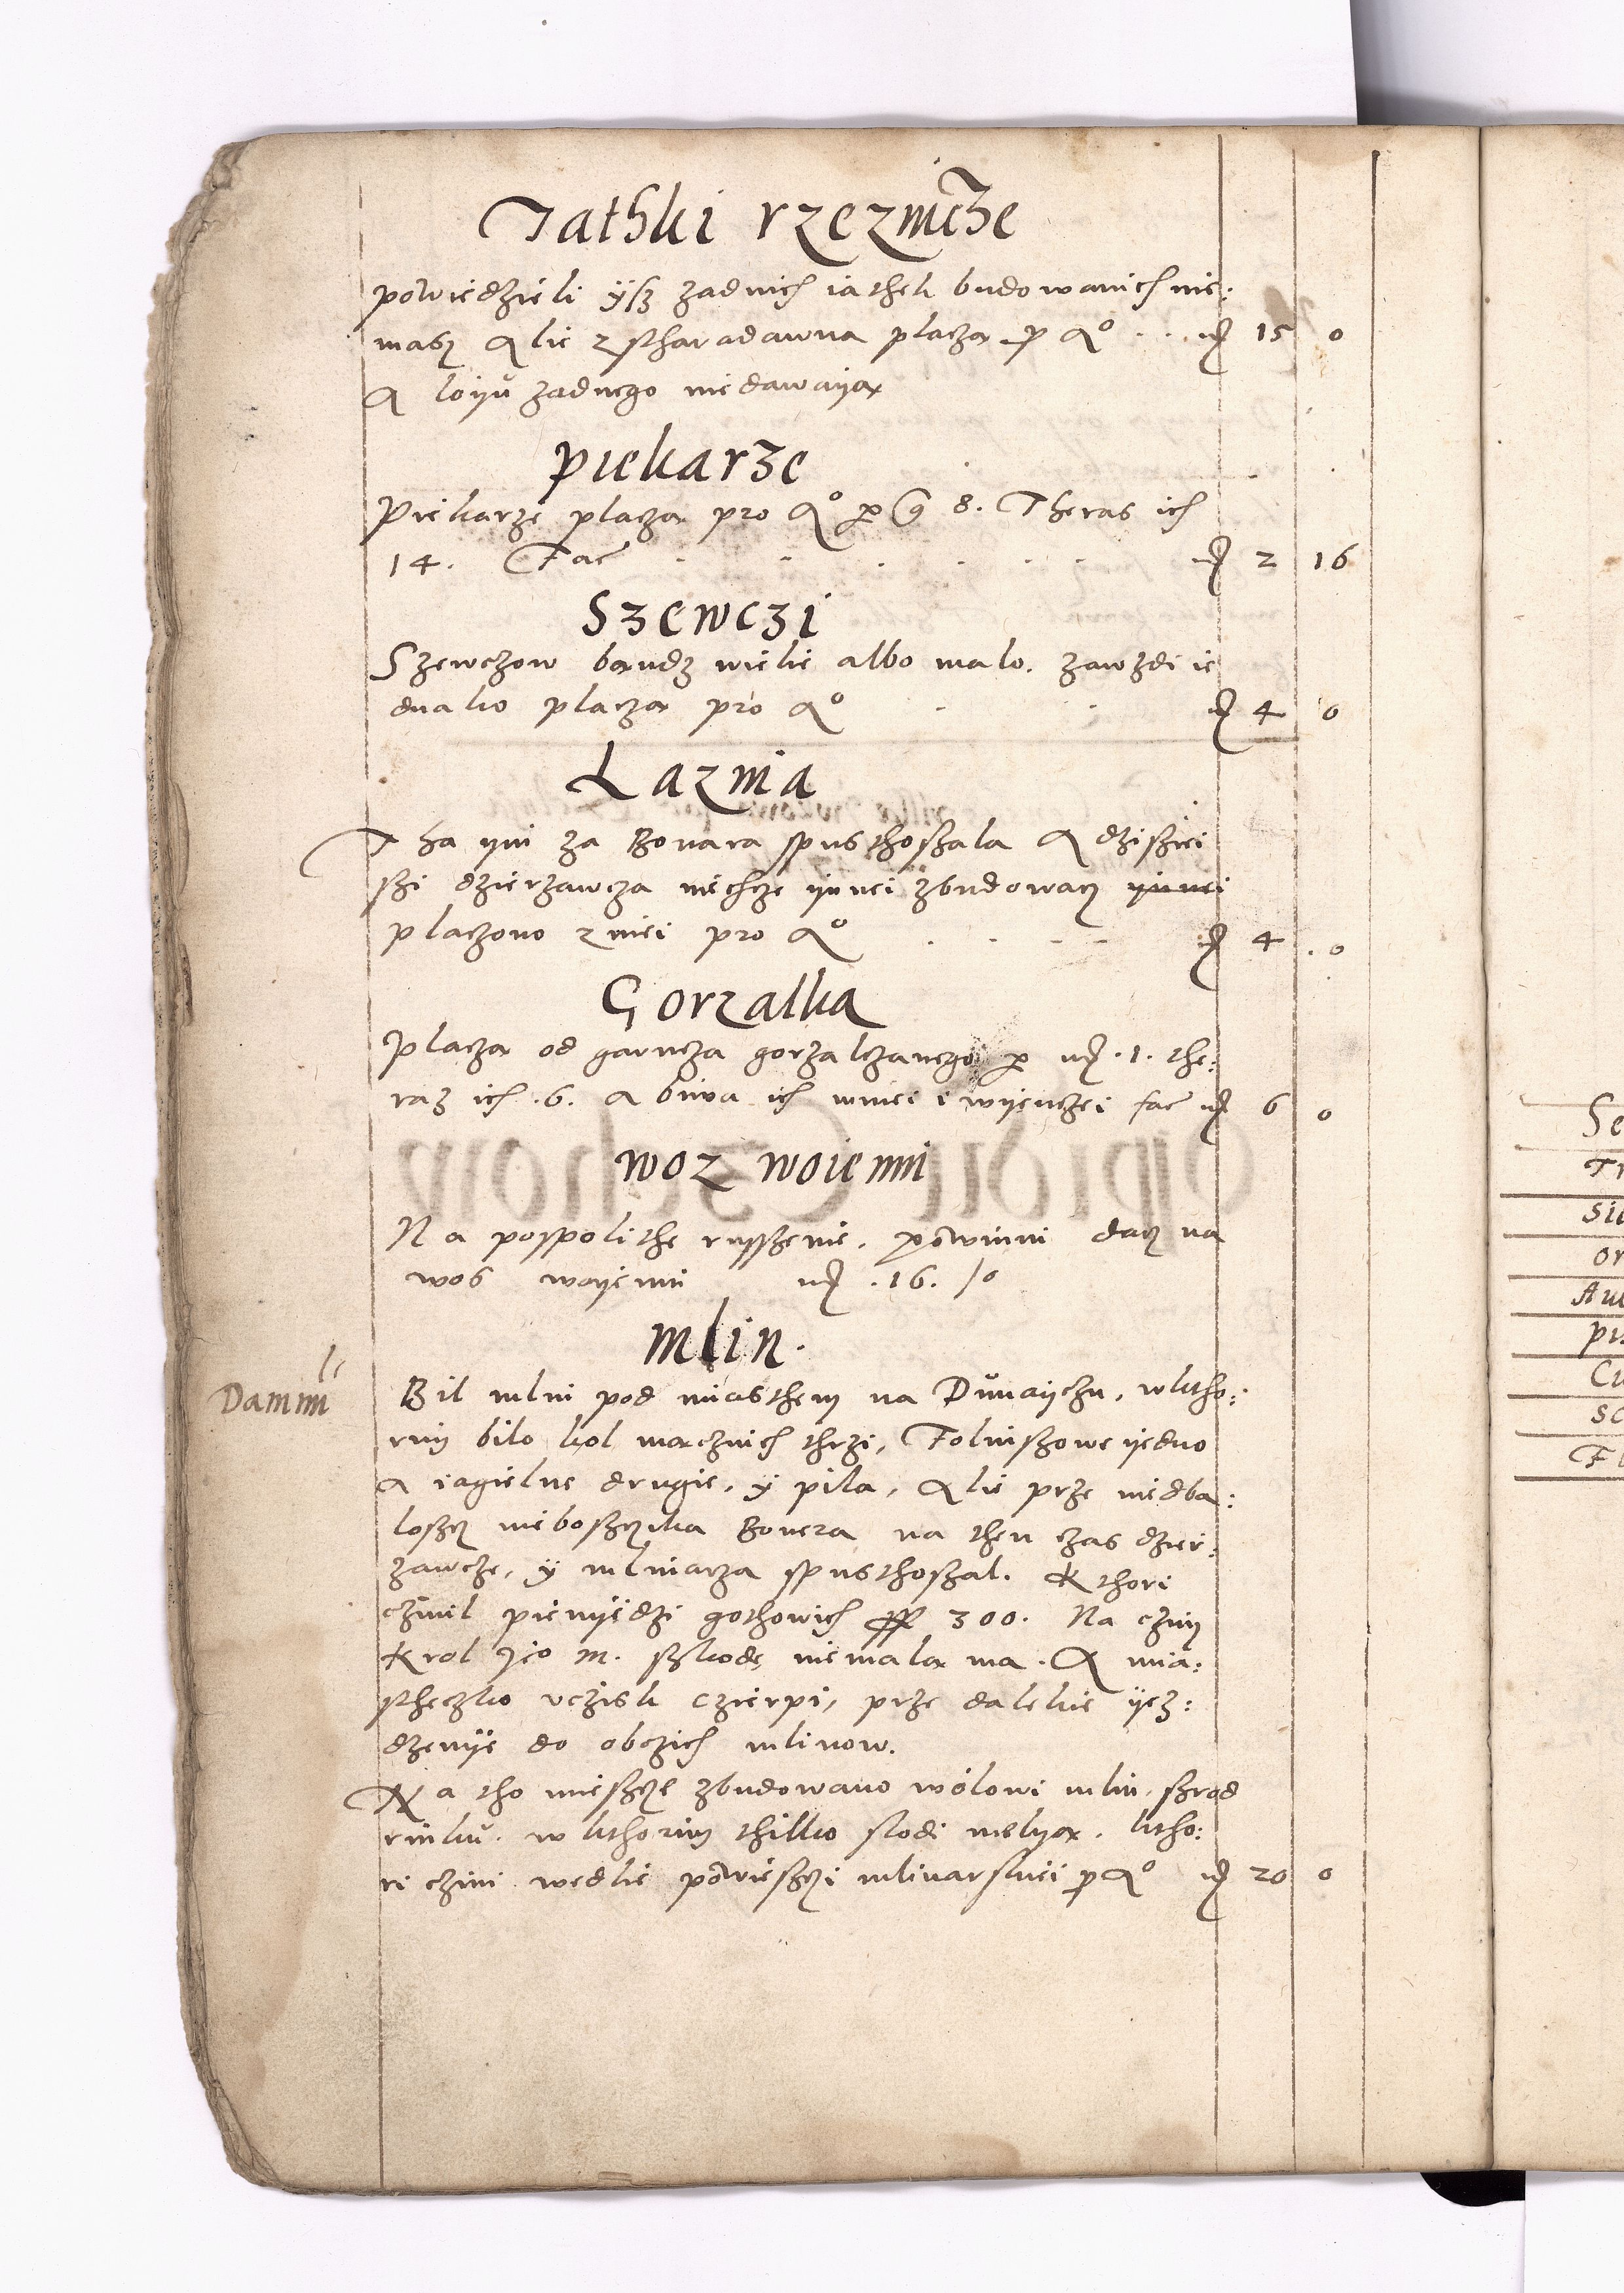 Jathki rzeznicze
powiedzieli ysz zadnich iathek budowanich nie:
masz Alie z stharadawna placza pro Ao ... mr 15 0
A loyu zadnego niedawaya
Piekarze
Piekarze placza pro Ao per gr 8. Theras ich
14. Fac mr 2 16
Szewczi
Szewczow bandz wielie albo malo. zawzdi ie
dnako placza pro Ao mr 4 0
Laznia
Tha yni za Bonara spusthoszala A dzisziei
szi dzierzawcza niechcze yinei zbudowacz yinei
placzono zniei pro Ao mr 4 0
Gorzalka
Placza od garncza gorzalczanego per mr .1. the:
raz ich .6. a biwa ich mniei i wyenczei fac mr 6 0
woz woienni
Na pospolithe russzenie, powinni dacz na
wos woyenni mr .16. /0
Mlin.
Damni
Bil mlin pod miasthem na Dunayczu, wktho:
rim bilo kol macznich thrzi, Folniszowe yedno
a iagielne drugie, y pila, Alie prze niedba:
loszcz nieboszczika Bonera na then czas dzier:
zawcze, y mlinarza spusthoszal. Kthori
czinil pienyedzi gothowich ff 300. Na czim
Krol Jeo M. szkode niemala ma. A mia:
stheczko uczisk czierpi, prze dalekie yez:
dzenye do obczich mlinow.
Na tho miescze zbudowano wolowi mlin, szrod
rinku. w kthorim thilko slodi melya. ktho:
ri czini wedlie powieszczi mlinarskiei pro Ao mr 20 0
Se
or